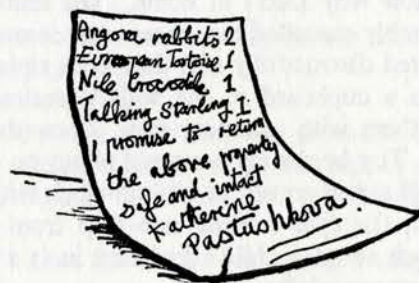 Angora rabbits 2
European Tortoise 1
Nile Crocodile 1
Talking Starling 1
I promise to return
the above property
safe and intact
Katherine
Pastushkova